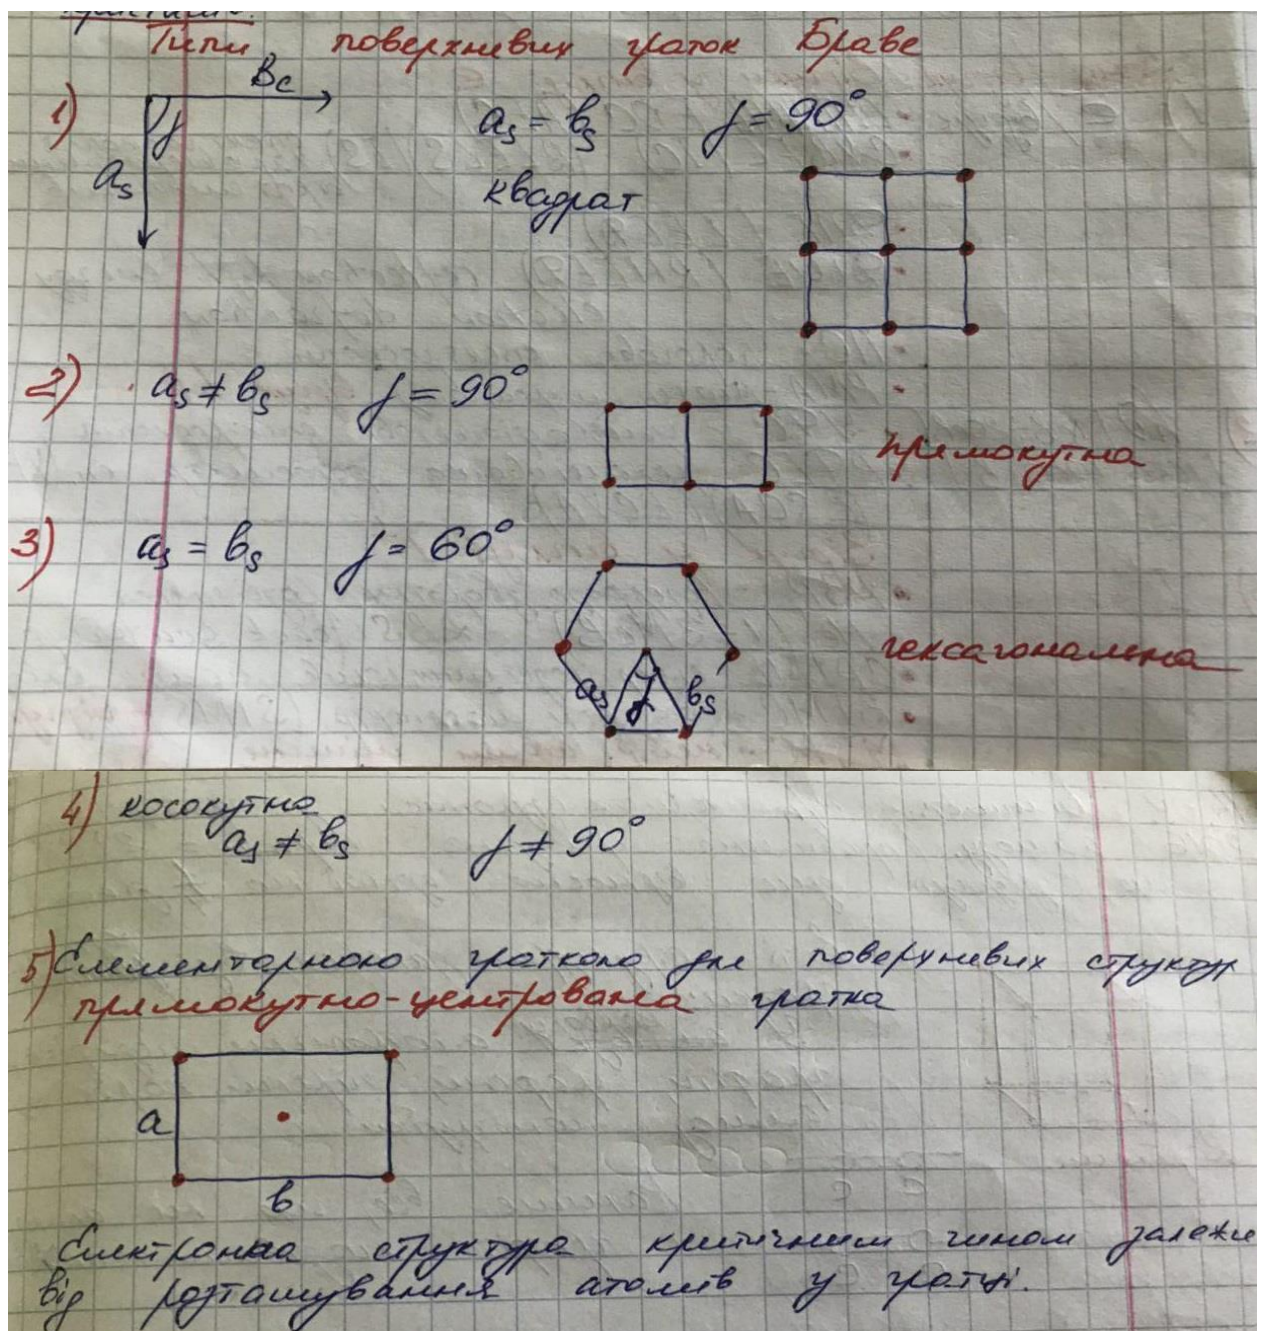 Типи поверхневих граток Браве
1) Bc
as γ
as = bs γ = 90°
квадрат
2) as ≠ bs γ = 90°
прямокутна
3) as = bs γ = 60°
as γ bs
гексагональна
4) косокутна
as ≠ bs γ ≠ 90°
5) Елементарною граткою для поверхневих структур
прямокутно-центрована гратка
a
b
Електронна структура критичним чином залежи
від розташування атомів у гратці.